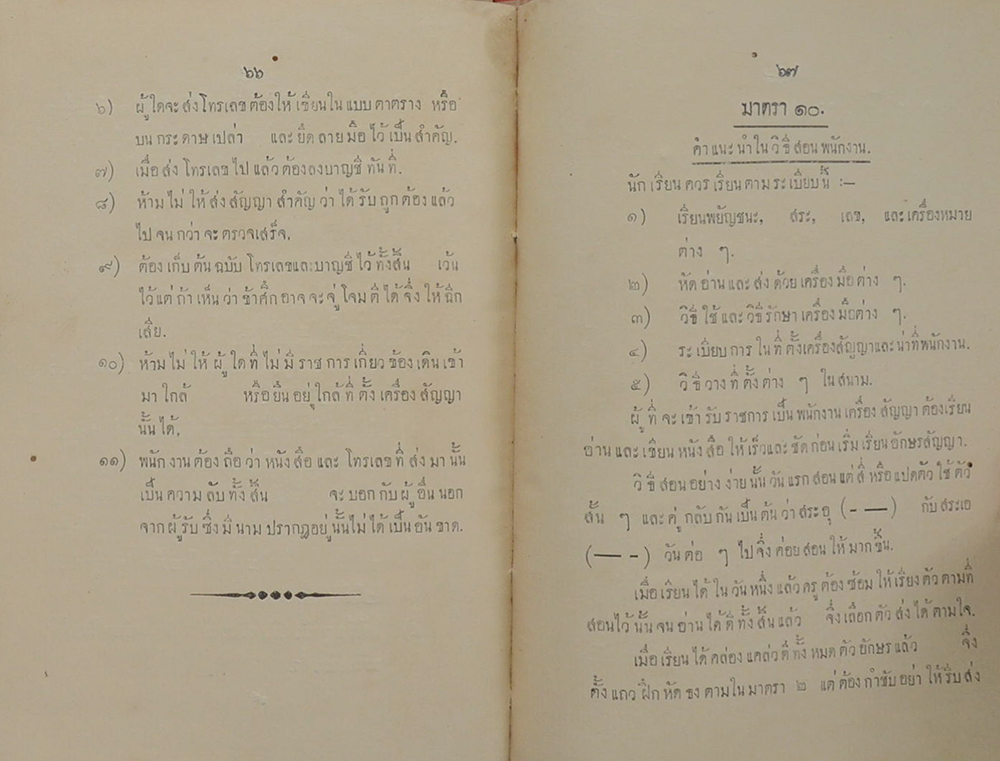 ๖๖
๖) ผู้ใดจะส่งโทรเลขต้องให้เขียนในแบบตาตราง หรือ
บนกระดาษเปล่า และยึดลายมือไว้เป็นสำคัญ.
๗) เมื่อส่งโทรเลขไปแล้วต้องลงบาญชีทันที.
๘) ห้ามไม่ให้ส่งสัญญาสำคัญว่าได้รับถูกต้องแล้ว
ไปจนกว่าจะตรวจเสร็จ.
๙) ต้องเก็บต้นฉบับโทรเลขและบาญชีไว้ทั้งสิ้น เว้น
ไว้แต่ถ้าเห็นว่าข้าศึกอาจจะจู่โจมตีได้จึ่งให้ฉีก
เสีย.
๑๐) ห้ามไม่ให้ผู้ใดที่ไม่มีราชการเกี่ยวข้องเดินเข้า
มาใกล้ หรือยืนอยู่ใกล้ที่ตั้งเครื่องสัญญา
นั้นได้.
๑๑) พนักงานต้องถือว่าหนังสือและโทรเลขที่ส่งมานั้น
เป็นความลับทั้งสิ้น จะบอกกับผู้อื่นนอก
จากผู้รับซึ่งมีนามปรากฏอยู่นั้นไม่ได้เป็นอันขาด.
๖๗
มาตรา ๑๐.
คำแนะนำในวิธีสอนพนักงาน.
นักเรียนควรเรียนตามระเบียบนี้ :—
๑) เรียนพยัญชนะ, สระ, เลข, และเครื่องหมาย
ต่าง ๆ.
๒) หัดอ่านและส่งด้วยเครื่องมือต่าง ๆ.
๓) วิธีใช้และวิธีรักษาเครื่องมือต่าง ๆ.
๔) ระเบียบการในที่ตั้งเครื่องสัญญาและน่าที่พนักงาน.
๕) วิธีวางที่ตั้งต่าง ๆ ในสนาม.
ผู้ที่จะเข้ารับราชการเป็นพนักงานเครื่องสัญญาต้องเรียน
อ่านและเขียนหนังสือให้เร็วและชัดก่อนเริ่มเรียนอักษรสัญญา.
วิธีสอนอย่างง่ายนั้นวันแรกสอนแต่สี่หรือแปดตัวใช้ตัว
สั้น ๆ และคู่กลับกันเป็นต้นว่าสระอุ (- — —) กับสระเอ
(— — -) วันต่อ ๆ ไปจึ่งค่อยสอนให้มากขึ้น.
เมื่อเรียนได้ในวันหนึ่งแล้วครูต้องซ้อมให้เรียงตัวตามที่
สอนไว้นั้นจนอ่านได้ดีทั้งสิ้นแล้ว จึ่งเลือกตัวส่งได้ตามใจ.
เมื่อเรียนได้คล่องแคล่วดีทั้งหมดตัวอักษรแล้ว จึ่ง
ตั้งแถวฝึกหัดธงตามในมาตรา ๒ แต่ต้องกำชับอย่าให้รีบส่ง